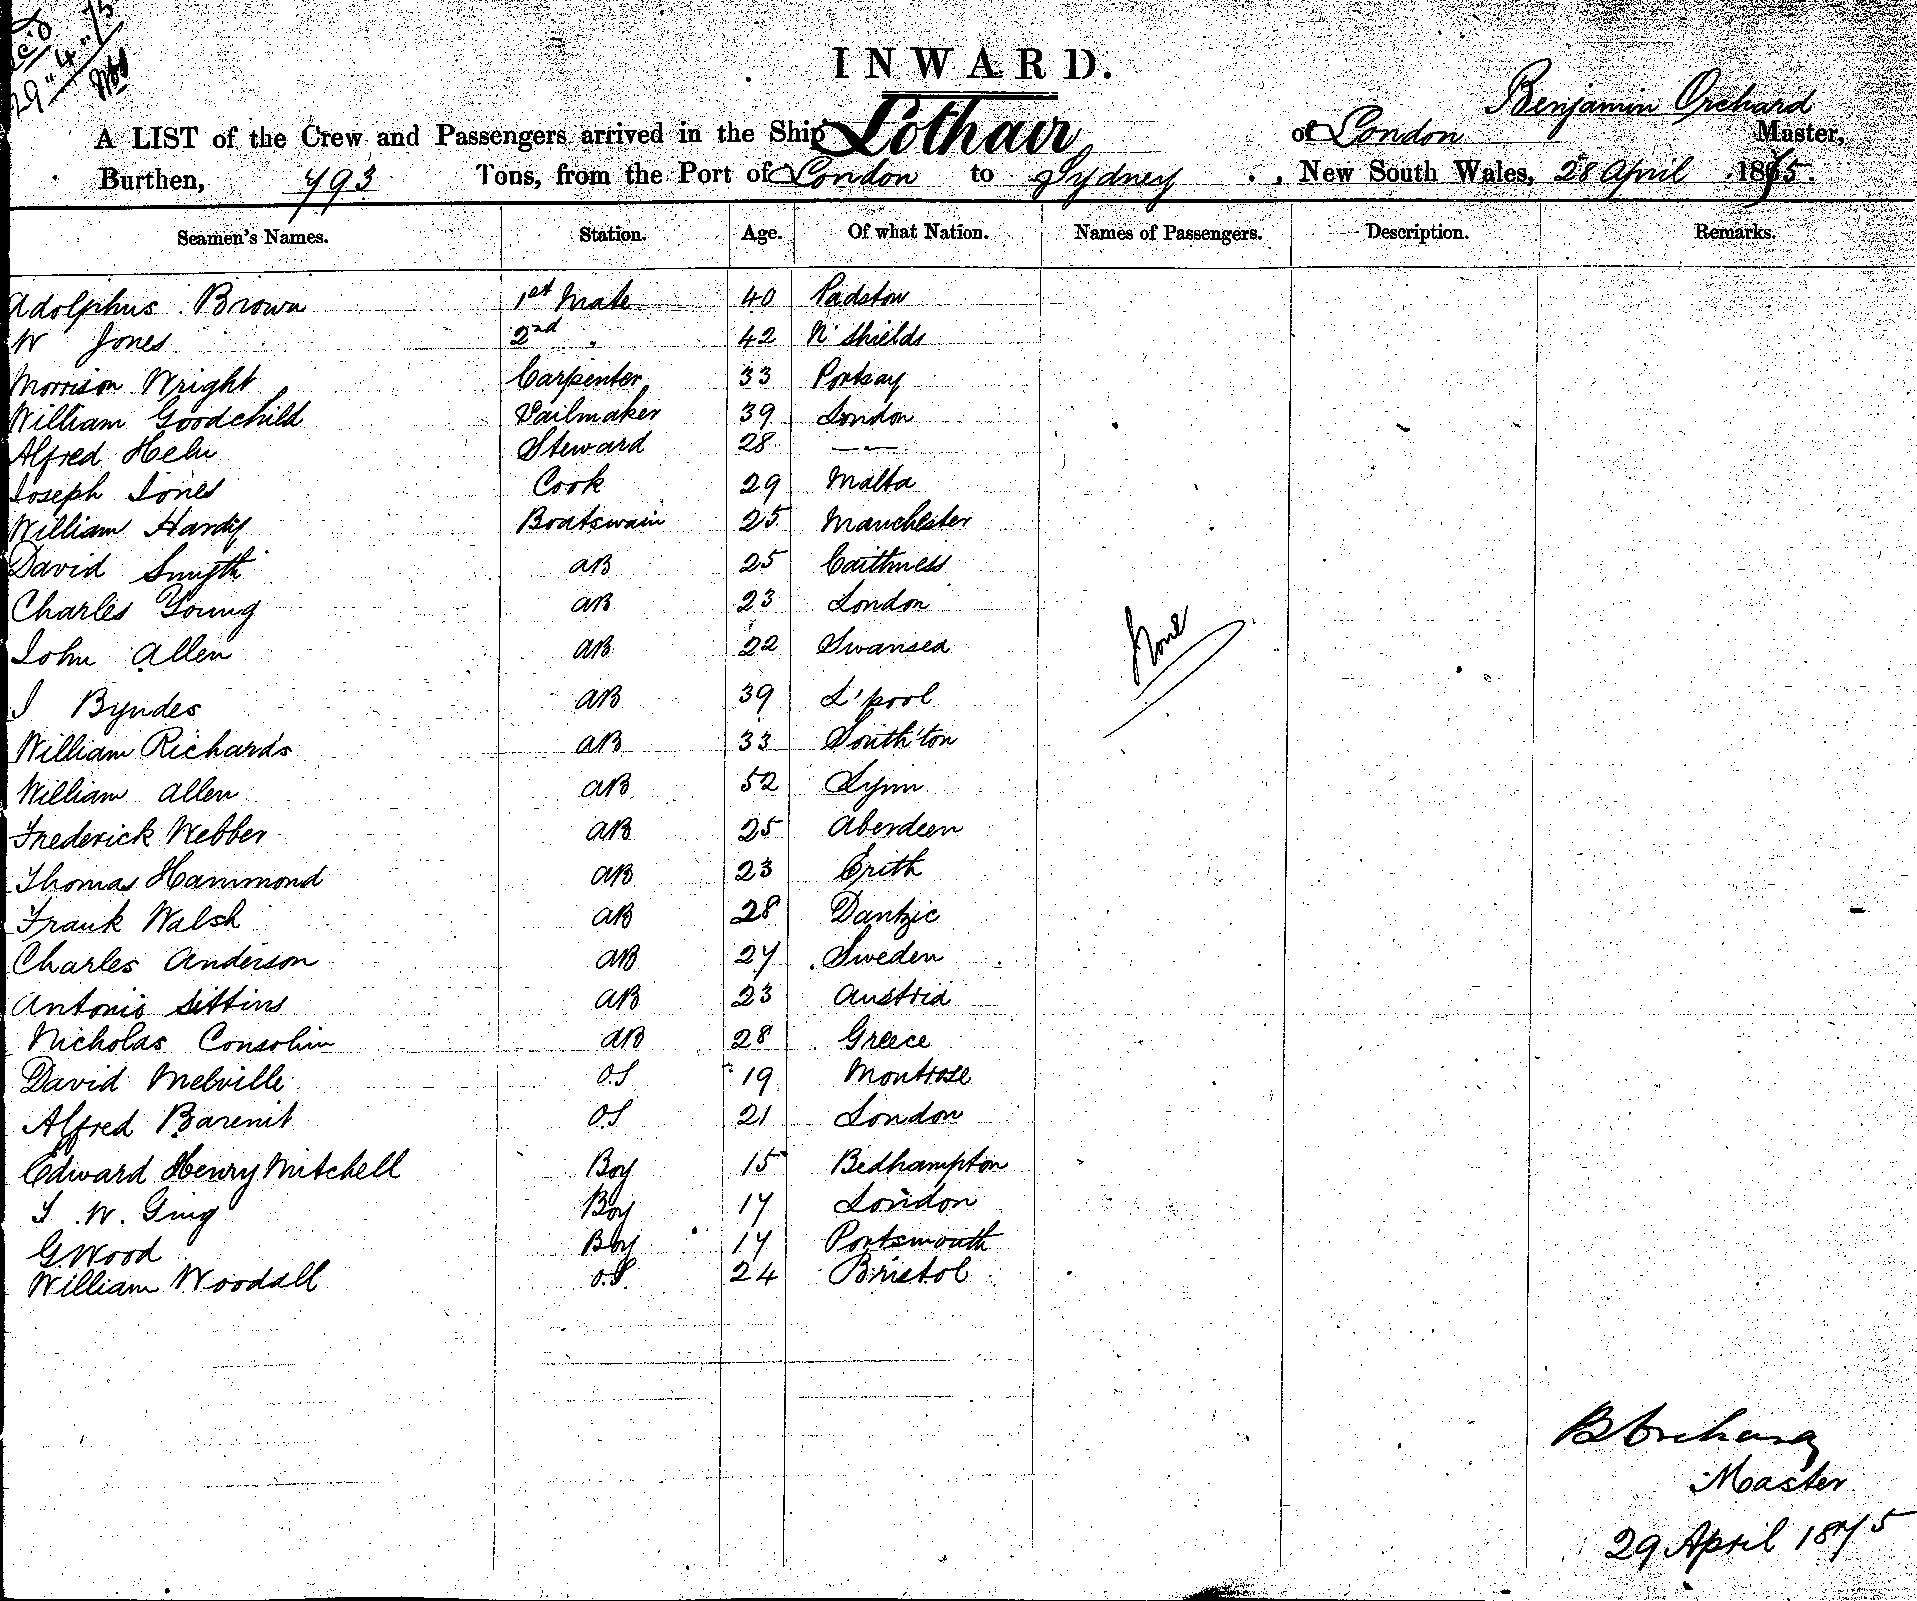 29 " 4 " 75
INWARD.
Benjamin Orchard
A LIST of the Crew and Passengers arrived in the Ship Lothair of London Master,
Burthen, 793 Tons, from the Port of London to Sydney, New South Wales, 28 April 1875.
Seamen's Names. Station. Age. Of what Nation. Names of Passengers. Description. Remarks.
Adolphus Brown 1st Mate 40 Padstow
W Jones 2nd " 42 N' Shields
Morrison Wright Carpenter 33 Portsoy
William Goodchild Sailmaker 39 London
Alfred Steward 28 — " —
Joseph Jones Cook 29 Malta
William Hardy Boatswain 25 Manchester
David Smyth AB 25 Caithness
Charles Young AB 23 London
John Allen AB 22 Swansea
None
J Byndes AB 39 L'pool
William Richards AB 33 South'ton
William Allen AB 52 Lynn
Frederick Webber AB 25 Aberdeen
Thomas Hammond AB 23 Erith
Frank Walsh AB 28 Dantzic
Charles Anderson AB 27 Sweden
Antonio Sittins AB 23 Austria
Nicholas AB 28 Greece
David Melville O.S 19 Montrose
Alfred O.S 21 London
Edward Henry Mitchell Boy 15 Bedhampton
W. Boy 17 London
G. Wood Boy 17 Portsmouth
William Woodall O.S 24 Bristol
B Orchard
Master
29 April 1875